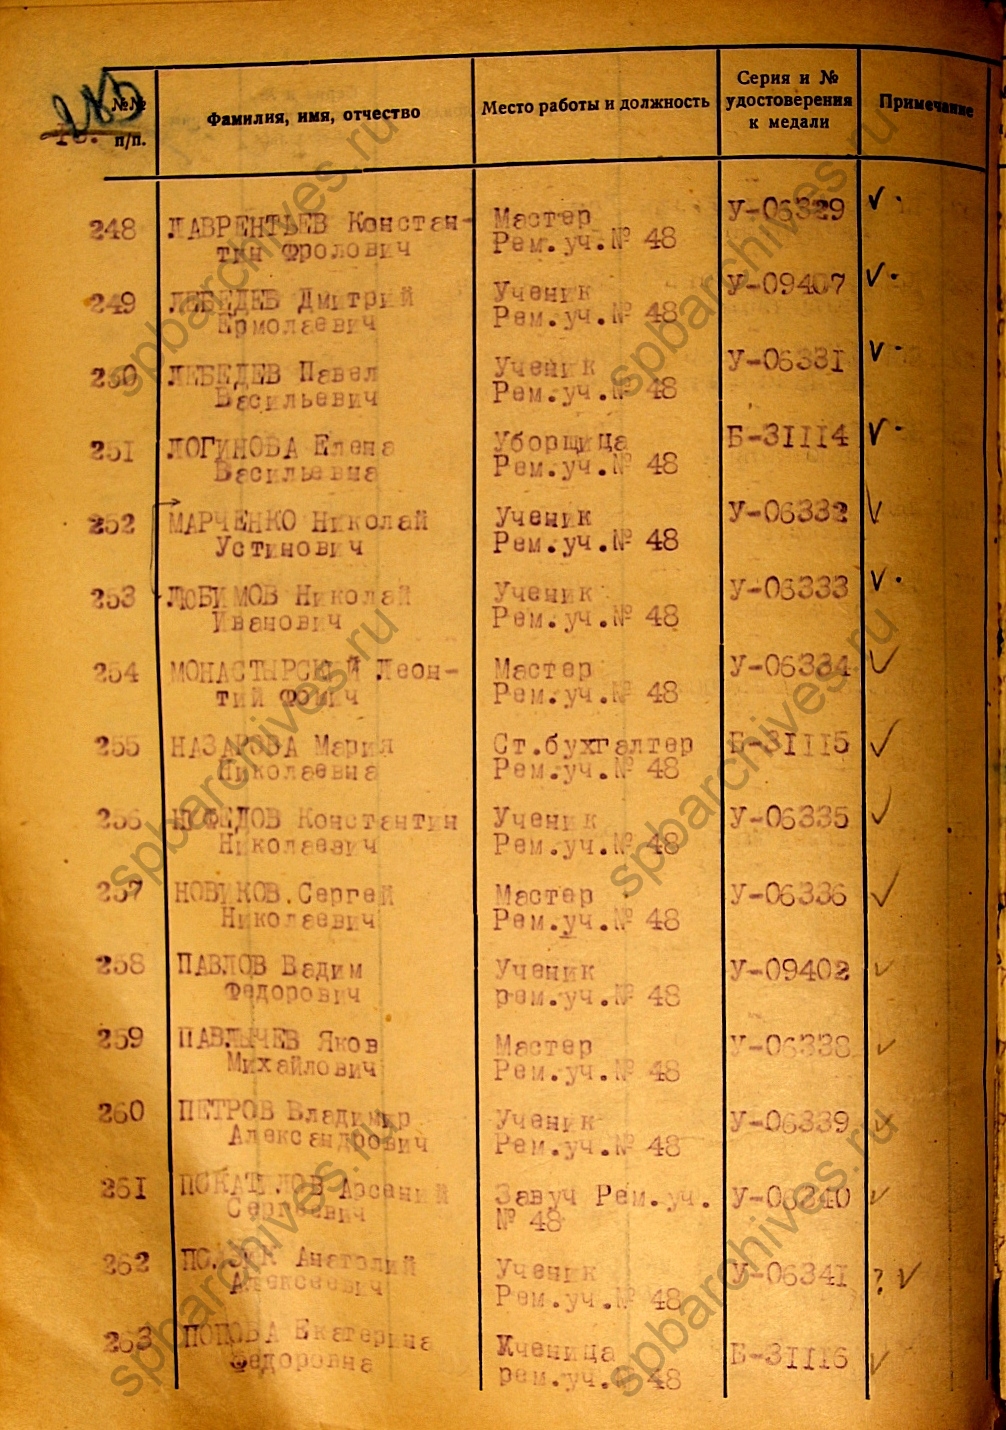 №№ п/п.
Фамилия, имя, отчество
Место работы и должность
Серия и №
удостоверения
к медали
Примечание
248 ЛАВРЕНТЬЕВ Констан- Мастер У-06329 ✓
тин Фролович Рем.уч.№ 48
249 ЛЕБЕДЕВ Дмитрий Ученик У-09407 ✓
Ермолаевич Рем.уч.№ 48
250 ЛЕБЕДЕВ Павел Ученик У-06331 ✓
Васильевич Рем.уч.№ 48
251 ЛОГИНОВА Елена Уборщица Б-31114 ✓
Васильевна Рем.уч.№ 48
252 МАРЧЕНКО Николай Ученик У-06332 ✓
Устинович Рем.уч.№ 48
253 ЛЮБИМОВ Николай Ученик У-06333 ✓
Иванович Рем.уч.№ 48
254 МОНАСТЫРСКИЙ Леон- Мастер У-06334 ✓
тий Фомич Рем.уч.№ 48
255 НАЗАРОВА Мария Ст.бухгалтер Б-31115 ✓
Николаевна Рем.уч.№ 48
256 НЕФЕДОВ Константин Ученик У-06335 ✓
Николаевич Рем.уч.№ 48
257 НОВИКОВ.Сергей Мастер У-06336 ✓
Николаевич Рем.уч.№ 48
258 ПАВЛОВ Вадим Ученик У-09402 ✓
Федорович рем.уч.№ 48
259 ПАВЛЫЧЕВ Яков Мастер У-06338 ✓
Михайлович Рем.уч.№ 48
260 ПЕТРОВ Владимир Ученик У-06339 ✓
Александрович Рем.уч.№ 48
261 ПОКАТИЛОВ Арсений Завуч Рем.уч. У-06340 ✓
Сергеевич № 48
262 Анатолий Ученик У-06341 ? ✓
Алексеевич Рем.уч.№ 48
263 ПОПОВА Екатерина Ученица Б-31116 ✓
Федоровна рем.уч.№ 48
spbarchives.ru
spbarchives.ru
spbarchives.ru
spbarchives.ru
spbarchives.ru
spbarchives.ru